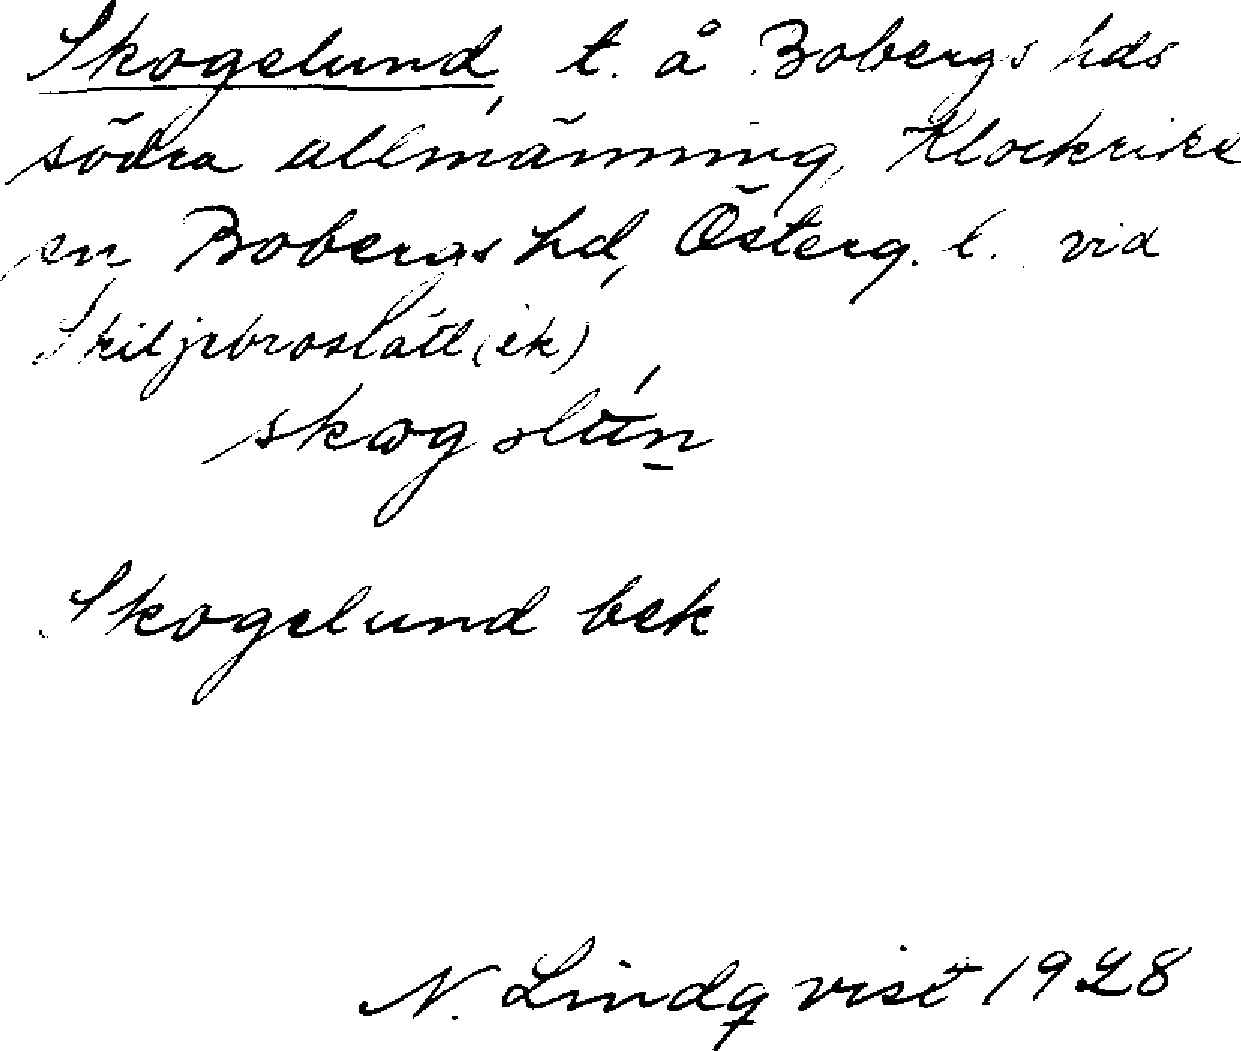 Skogelund, t. å Bobergs hds
södra allmänning, Klockrike
sn, Bobergs hd, Österg. l. vid
Skiljebroslätt (ek)
skogəlún
Skogelund bek
N. Lindqvist 1928